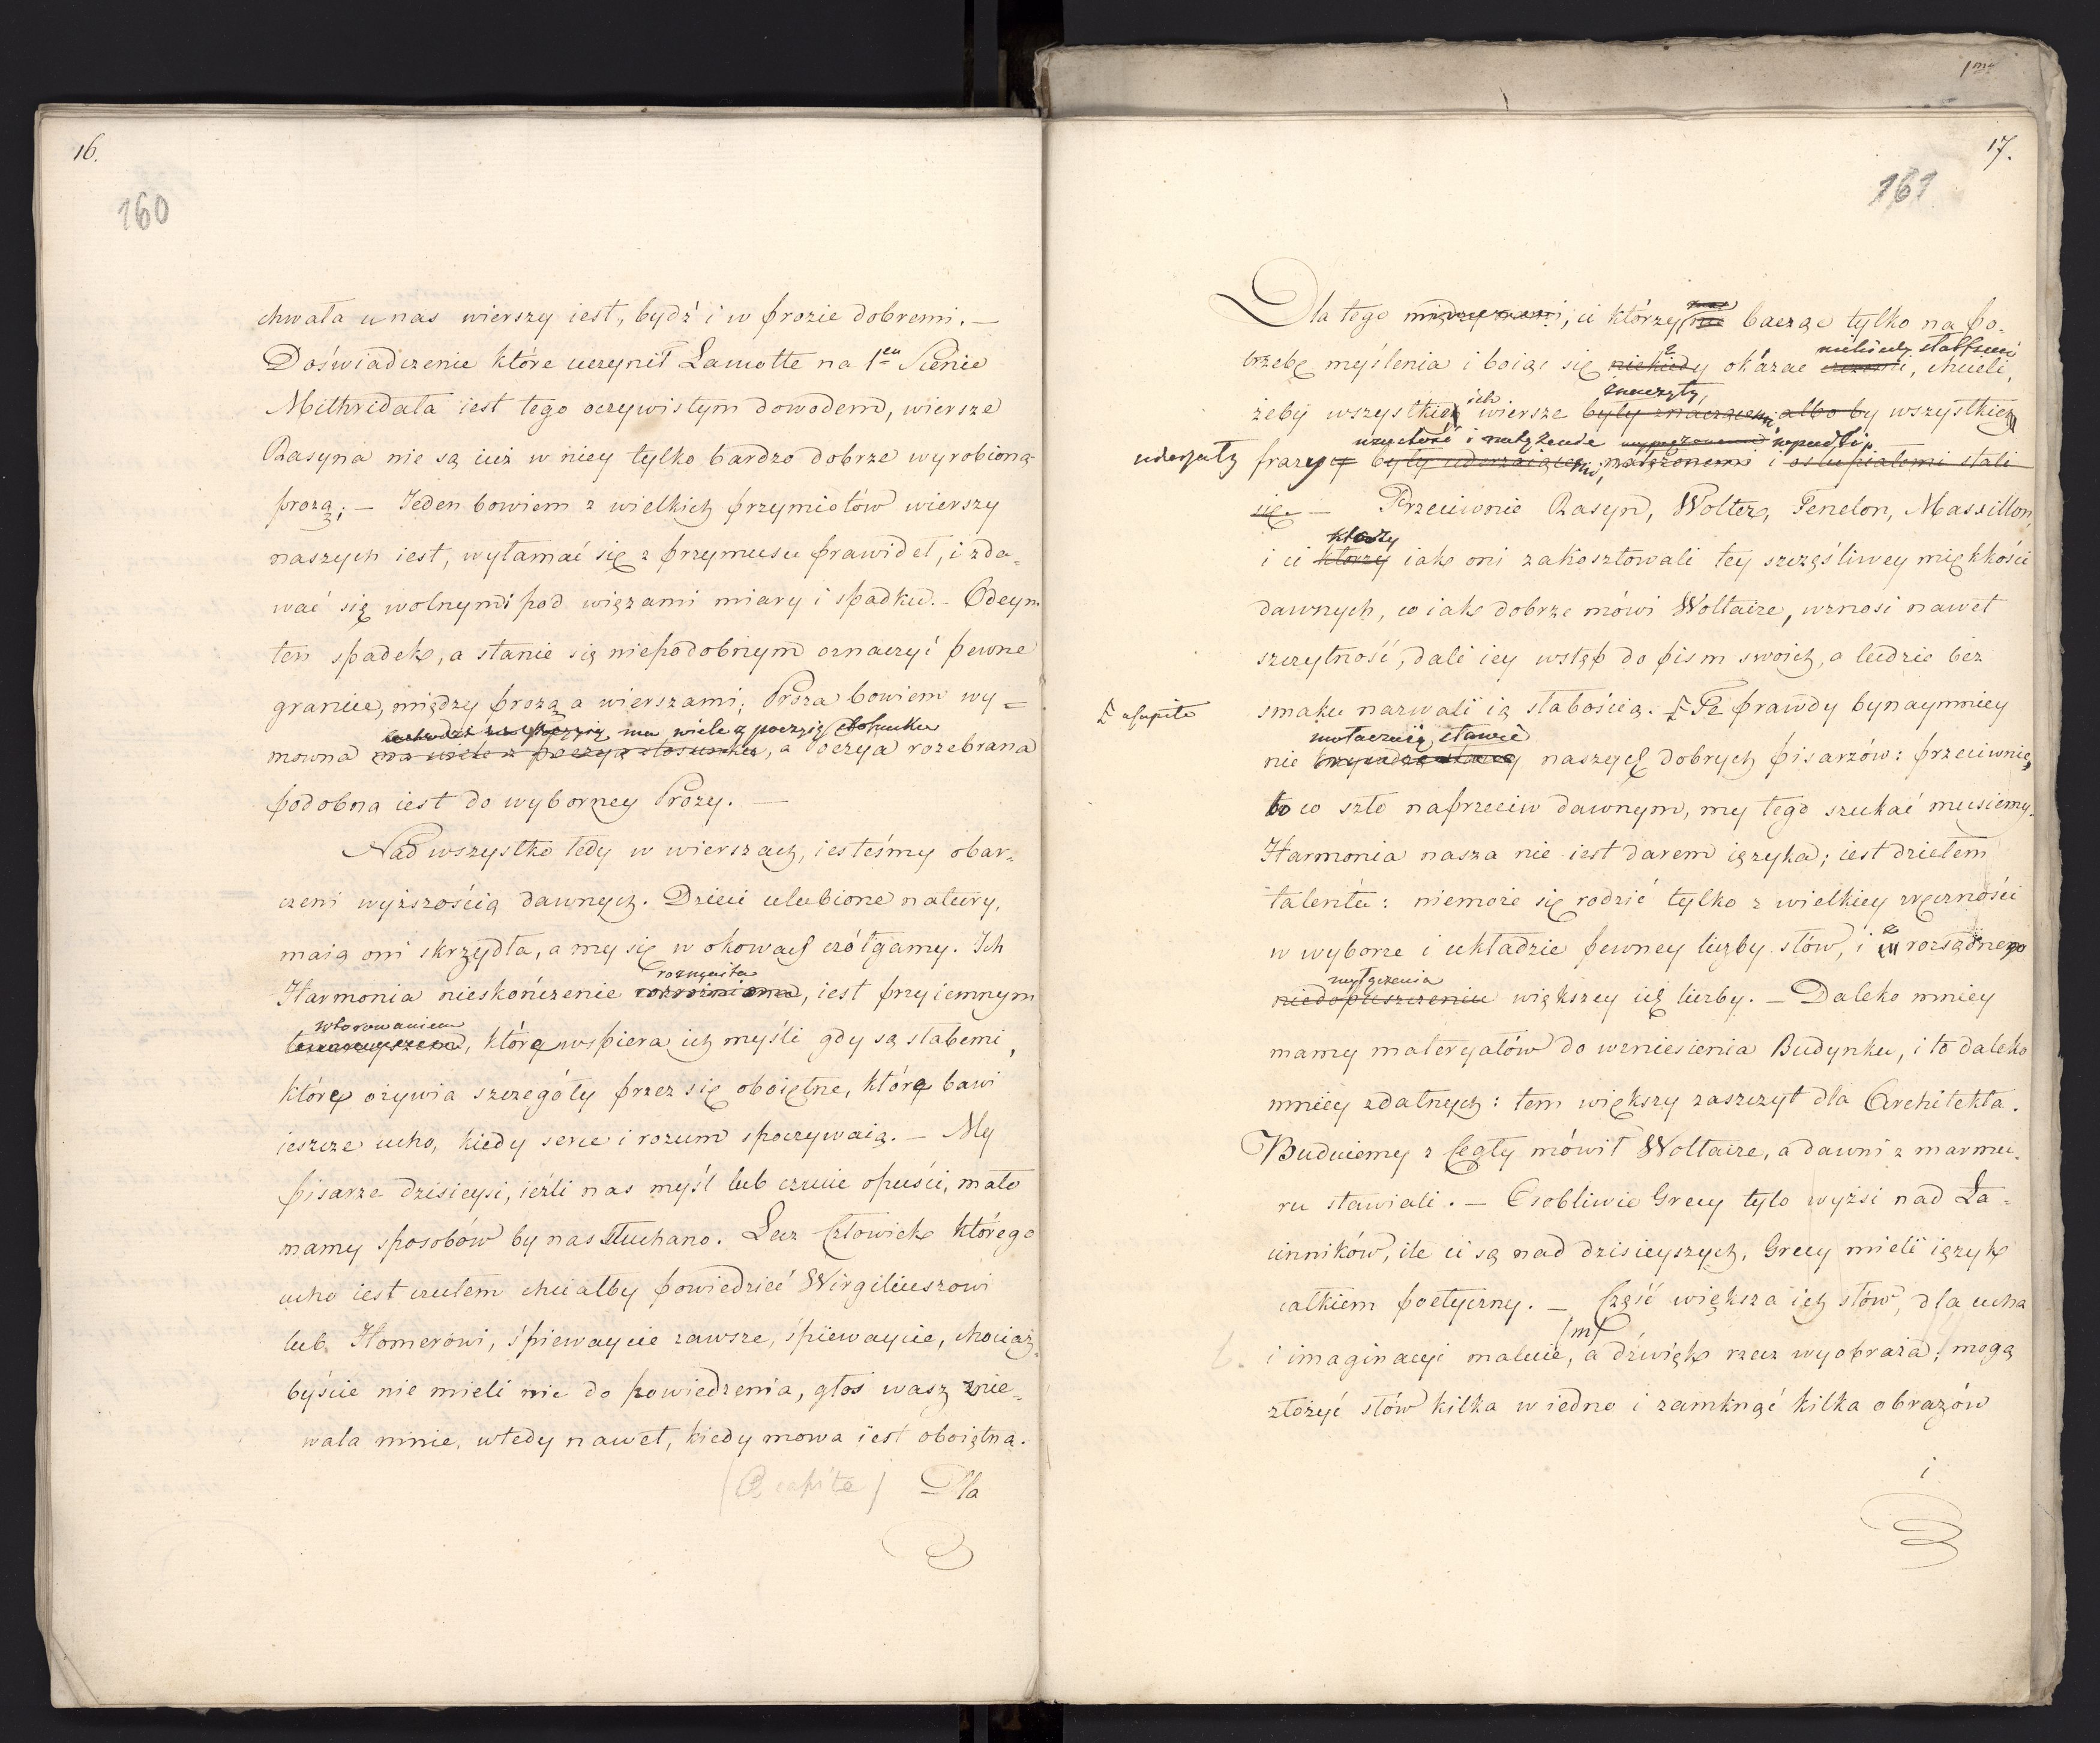 16.
160
chwała u nas wierszy iest, bydź i w prozie dobremi. —
Doświadczenie które uczynił Lamotte na 1ey Scenie
Mithridata iest tego oczywistym dowodem, wiersze
Rasyna nie są iuż w niey tylko bardzo dobrze wyrobioną
prozą; — Jeden bowiem z wielkich przymiotów wierszy
naszych iest, wyłamać się z przymusu prawideł, i zda-
wać się wolnymi pod więzami miary i spadku. — Odeym
ten spadek, a stanie się niepodobnym oznaczyć pewne
granice, między prozą a wierszami; Proza bowiem wy=
ma wiele z poezyią stosunku
mowna ma wiele z poezyą stosunku, a Poezya rozebrana
podobna iest do wyborney Prozy. —
Nad wszystko tedy w wierszach, iesteśmy obar-
czeni wyższością dawnych. Dzieci ulubione natury,
maią oni skrzydła, a my się w okowach czołgamy. Ich
rozmaita
Harmonia nieskończenie rozróżniona, iest przyiemnym
wtorowaniem
towarzyszem, które wspiera ich myśli gdy są słabemi,
które ożywia szczegóły przez się oboiętne, które bawi
ieszcze ucho, kiedy serce i rozum spoczywaią. — My
pisarze dzisieysi, ieźli nas myśl lub czucie opuści, mało
mamy sposobów by nas słuchano. Lecz Człowiek którego
ucho iest czułem chciałby powiedzieć Wirgiliuszowi
lub Homerowi, śpiewaycie zawsze, śpiewaycie, chociaż-
byście nie mieli nic do powiedzenia, głos wasz znie-
wala mnie, wtedy nawet, kiedy mowa iest oboiętną.
(A capite) Dla
17.
161
Dla tego między nami, ci którzy bacząc tylko na po-
niekiedy słabszemi
trzebę myślenia i boiąc się niekiedy okázac, chcieli,
ich znaczyły,
żeby wszystkie wiersze były znaczącemi albo by wszystkie
uderzały
czczość i natężenie wpadli
frazy były uderzaiącemi, natężonemi i osłupiałemi stali
się. — Przeciwnie Rasyn, Wolter, Fenelon, Massillon,
którzy
i ci którzy iak oni zakosztowali tey szczęśliwey miękkości
dawnych, co iak dobrze mówi Woltaire, wznosi nawet
szczytność, dali iey wstęp do pism swoich, a ludzie bez
a capite
smaku nazwali ią słabością. Te prawdy bynaymniey
nie naszych dobrych pisarzów: przeciwnie,
to co szło naprzeciw dawnym, my tego szukać musiemy.
Harmonia nasza nie iest darem ięzyka; iest dziełem
talentu: niemoże się rodzić tylko z wielkiey zręczności
w wyborze i układzie pewney liczby słów, i z rozsądnego
wyłączenia
niedopuszczeniu większey ich liczby. — Daleko mniey
mamy materyałów do wzniesienia Budynku, i to daleko
mniey zdatnych: tem większy zaszczyt dla Architekta.
Buduiemy z Cegły mówił Woltaire, a dawni z marmu-
ru stawiali. — Osobliwie Grecy tyle wyżsi nad Ła-
cinników, ile ci są nad dzisieyszych, Grecy mieli ięzyk
całkiem poetyczny. — Część większa ich słów, dla ucha
(m)
i imaginacyi maluie, a dźwięk rzecz wyobraża; mogą
złożyć słów kilka w iedno i zamknąć kilka obrazów
i